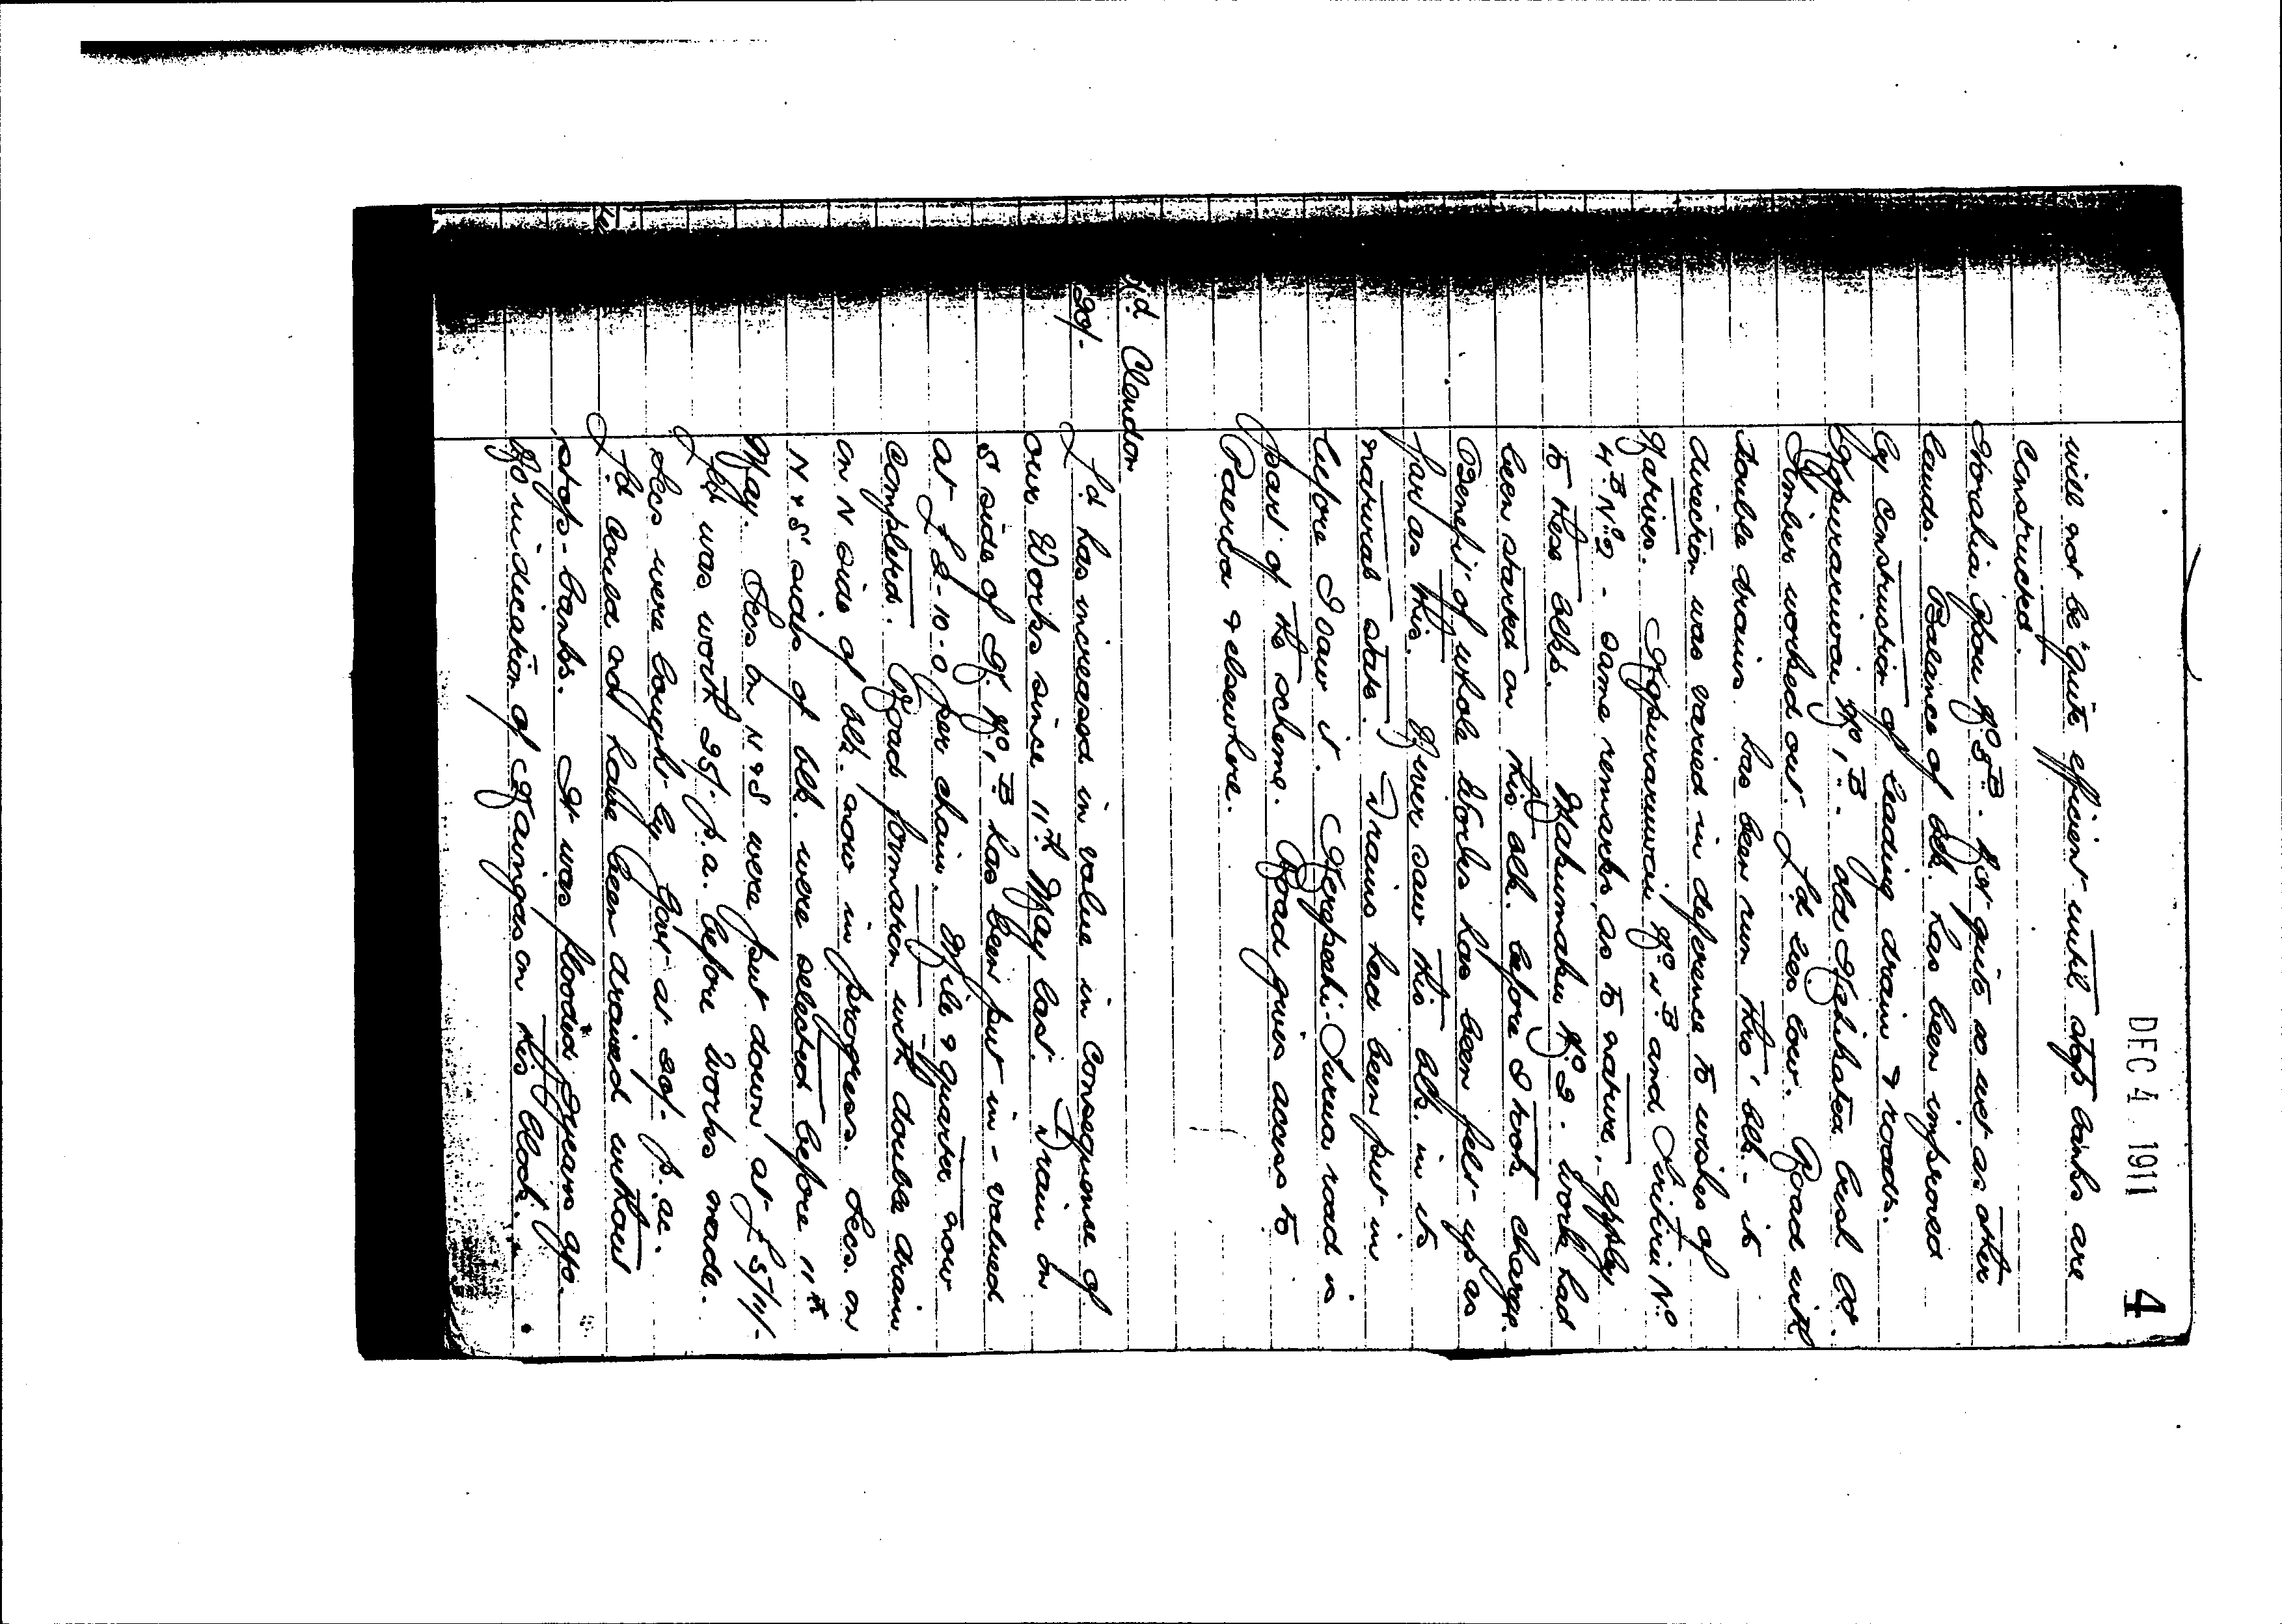 DEC 4 1911 4
will not be quite efficient until stop banks are
constructed.
Horahia Opou No 5B. Not quite so wet as other
lands. Balance of blk. has been improved
by construction of leading drain & roads.
Hopuruwai No 1B - old Kahikatea bush Ld.
Timber worked out. Ld lies low. Road with
double drains has been run thro' blk. - its
direction was varied in deference to wishes of
Natives. Hopuruwai No 2B and Tirikiri No
4B No 2 - same remarks, as to nature, apply
to these blks. Mahumahu No 2. Work had
been started on this blk. before I took charge.
Benefit of whole Works has been felt up as
far as this. Never saw this blk. in its
natural state. Drains had been put in
before I saw it. Kerepeehi-Turua road is
part of the scheme. Road gives access to
Paeroa & elsewhere.
Xd Clendon
20/-. Ld has increased in value in consequence of
our Works since 11th May last. Drain on
S side of No 1B has been put in - valued
at £2-10-0 per chain. Mile & quarter now
completed. Road formation with double drain
on N side of blk. now in progress. Secs. on
N & S sides of blk. were selected before 11th
May. Secs on N & S were put down at £5/11/-
Ld was worth 25/- p.a. before Works made.
Secs were bought by Govt at 20/- p. ac.
Ld could not have been drained without
stop-banks. It was flooded years ago.
No indication of Kaingas on this block.